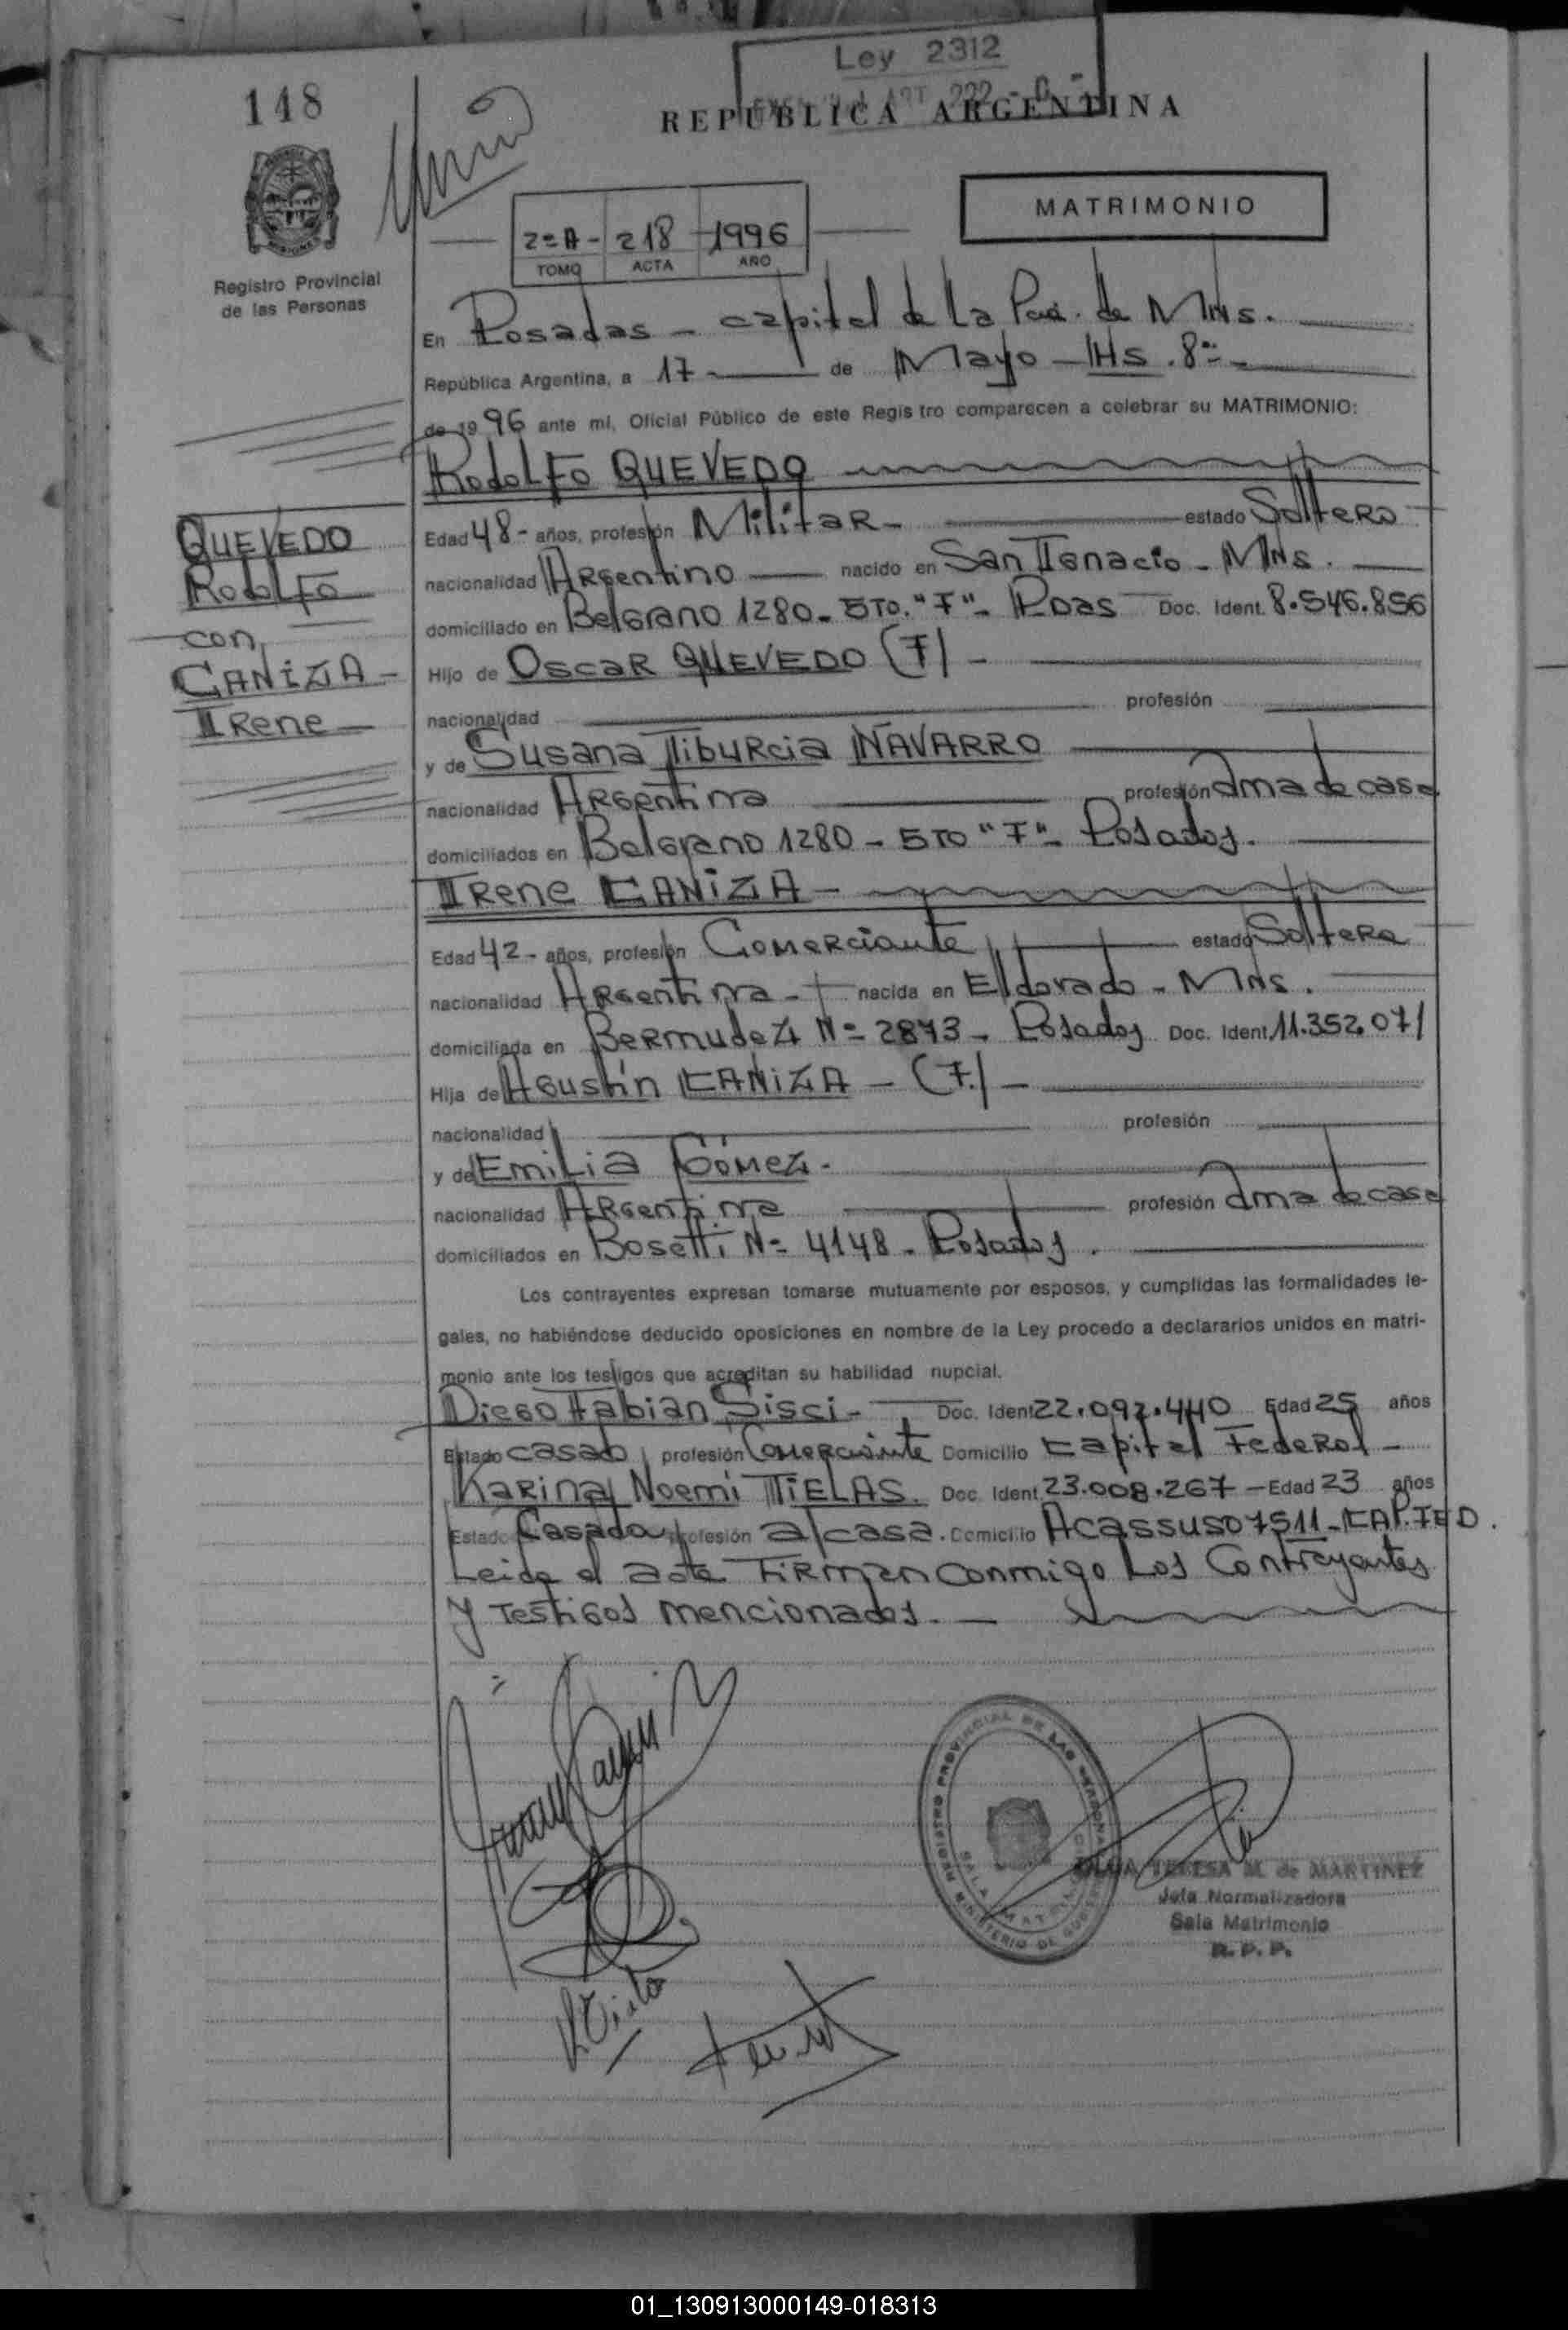 Ley 2312
148
REPUBLICA ARGENTINA
MATRIMONIO
2º A - 218 1996
TOMO ACTA AÑO
Registro Provincial
de las Personas
En Posadas - capital de la Pcia. de Mnes.
República Argentina, a 17 - de Mayo - Hs. 8
de 1996 ante mí, Oficial Público de este Registro comparecen a celebrar su MATRIMONIO:
Rodolfo QUEVEDO
QUEVEDO
Rodolfo
con
CANIZA -
Irene
Edad 48 - años, profesión Militar - estado Soltero
nacionalidad Argentino nacido en San Ignacio - Mnes.
domiciliado en Belgrano 1280 - 5TO. "F" - Pdas Doc. Ident. 8.546.856
Hijo de Oscar QUEVEDO (F) -
nacionalidad profesión
y de Susana Tiburcia NAVARRO
nacionalidad Argentina profesión Ama de casa
domiciliados en Belgrano 1280 - 5TO "F" - Posadas.
Irene CANIZA -
Edad 42 - años, profesión Comerciante estado Soltera
nacionalidad Argentina - nacida en Eldorado - Mnes.
domiciliada en Bermudez Nº 2873 - Posadas Doc. Ident. 11.352.071
Hija de Agustín CANIZA - (F.) -
nacionalidad profesión
y de Emilia Gómez -
nacionalidad Argentina profesión Ama de casa
domiciliados en Bosetti Nº 4148 - Posadas.
Los contrayentes expresan tomarse mutuamente por esposos, y cumplidas las formalidades le-
gales, no habiéndose deducido oposiciones en nombre de la Ley procedo a declararlos unidos en matri-
monio ante los testigos que acreditan su habilidad nupcial.
Diego Fabian Sisci - Doc. Ident 22.092.440 Edad 25 años
Estado casado profesión Comerciante Domicilio Capital Federal -
Karina Noemí TIELAS. Doc. Ident 23.008.267 - Edad 23 años
Estado Casada profesión a/casa. Domicilio Acassuso 7511 - CAP. FED.
Leida el acta Firman conmigo Los Contrayentes
y Testigos mencionados. -
REGISTRO PROVINCIAL DE LAS PERSONAS
MINISTERIO DE
TERESA M. de MARTINEZ
Jefa Normalizadora
Sala Matrimonio
R. P. P.
01_130913000149-018313